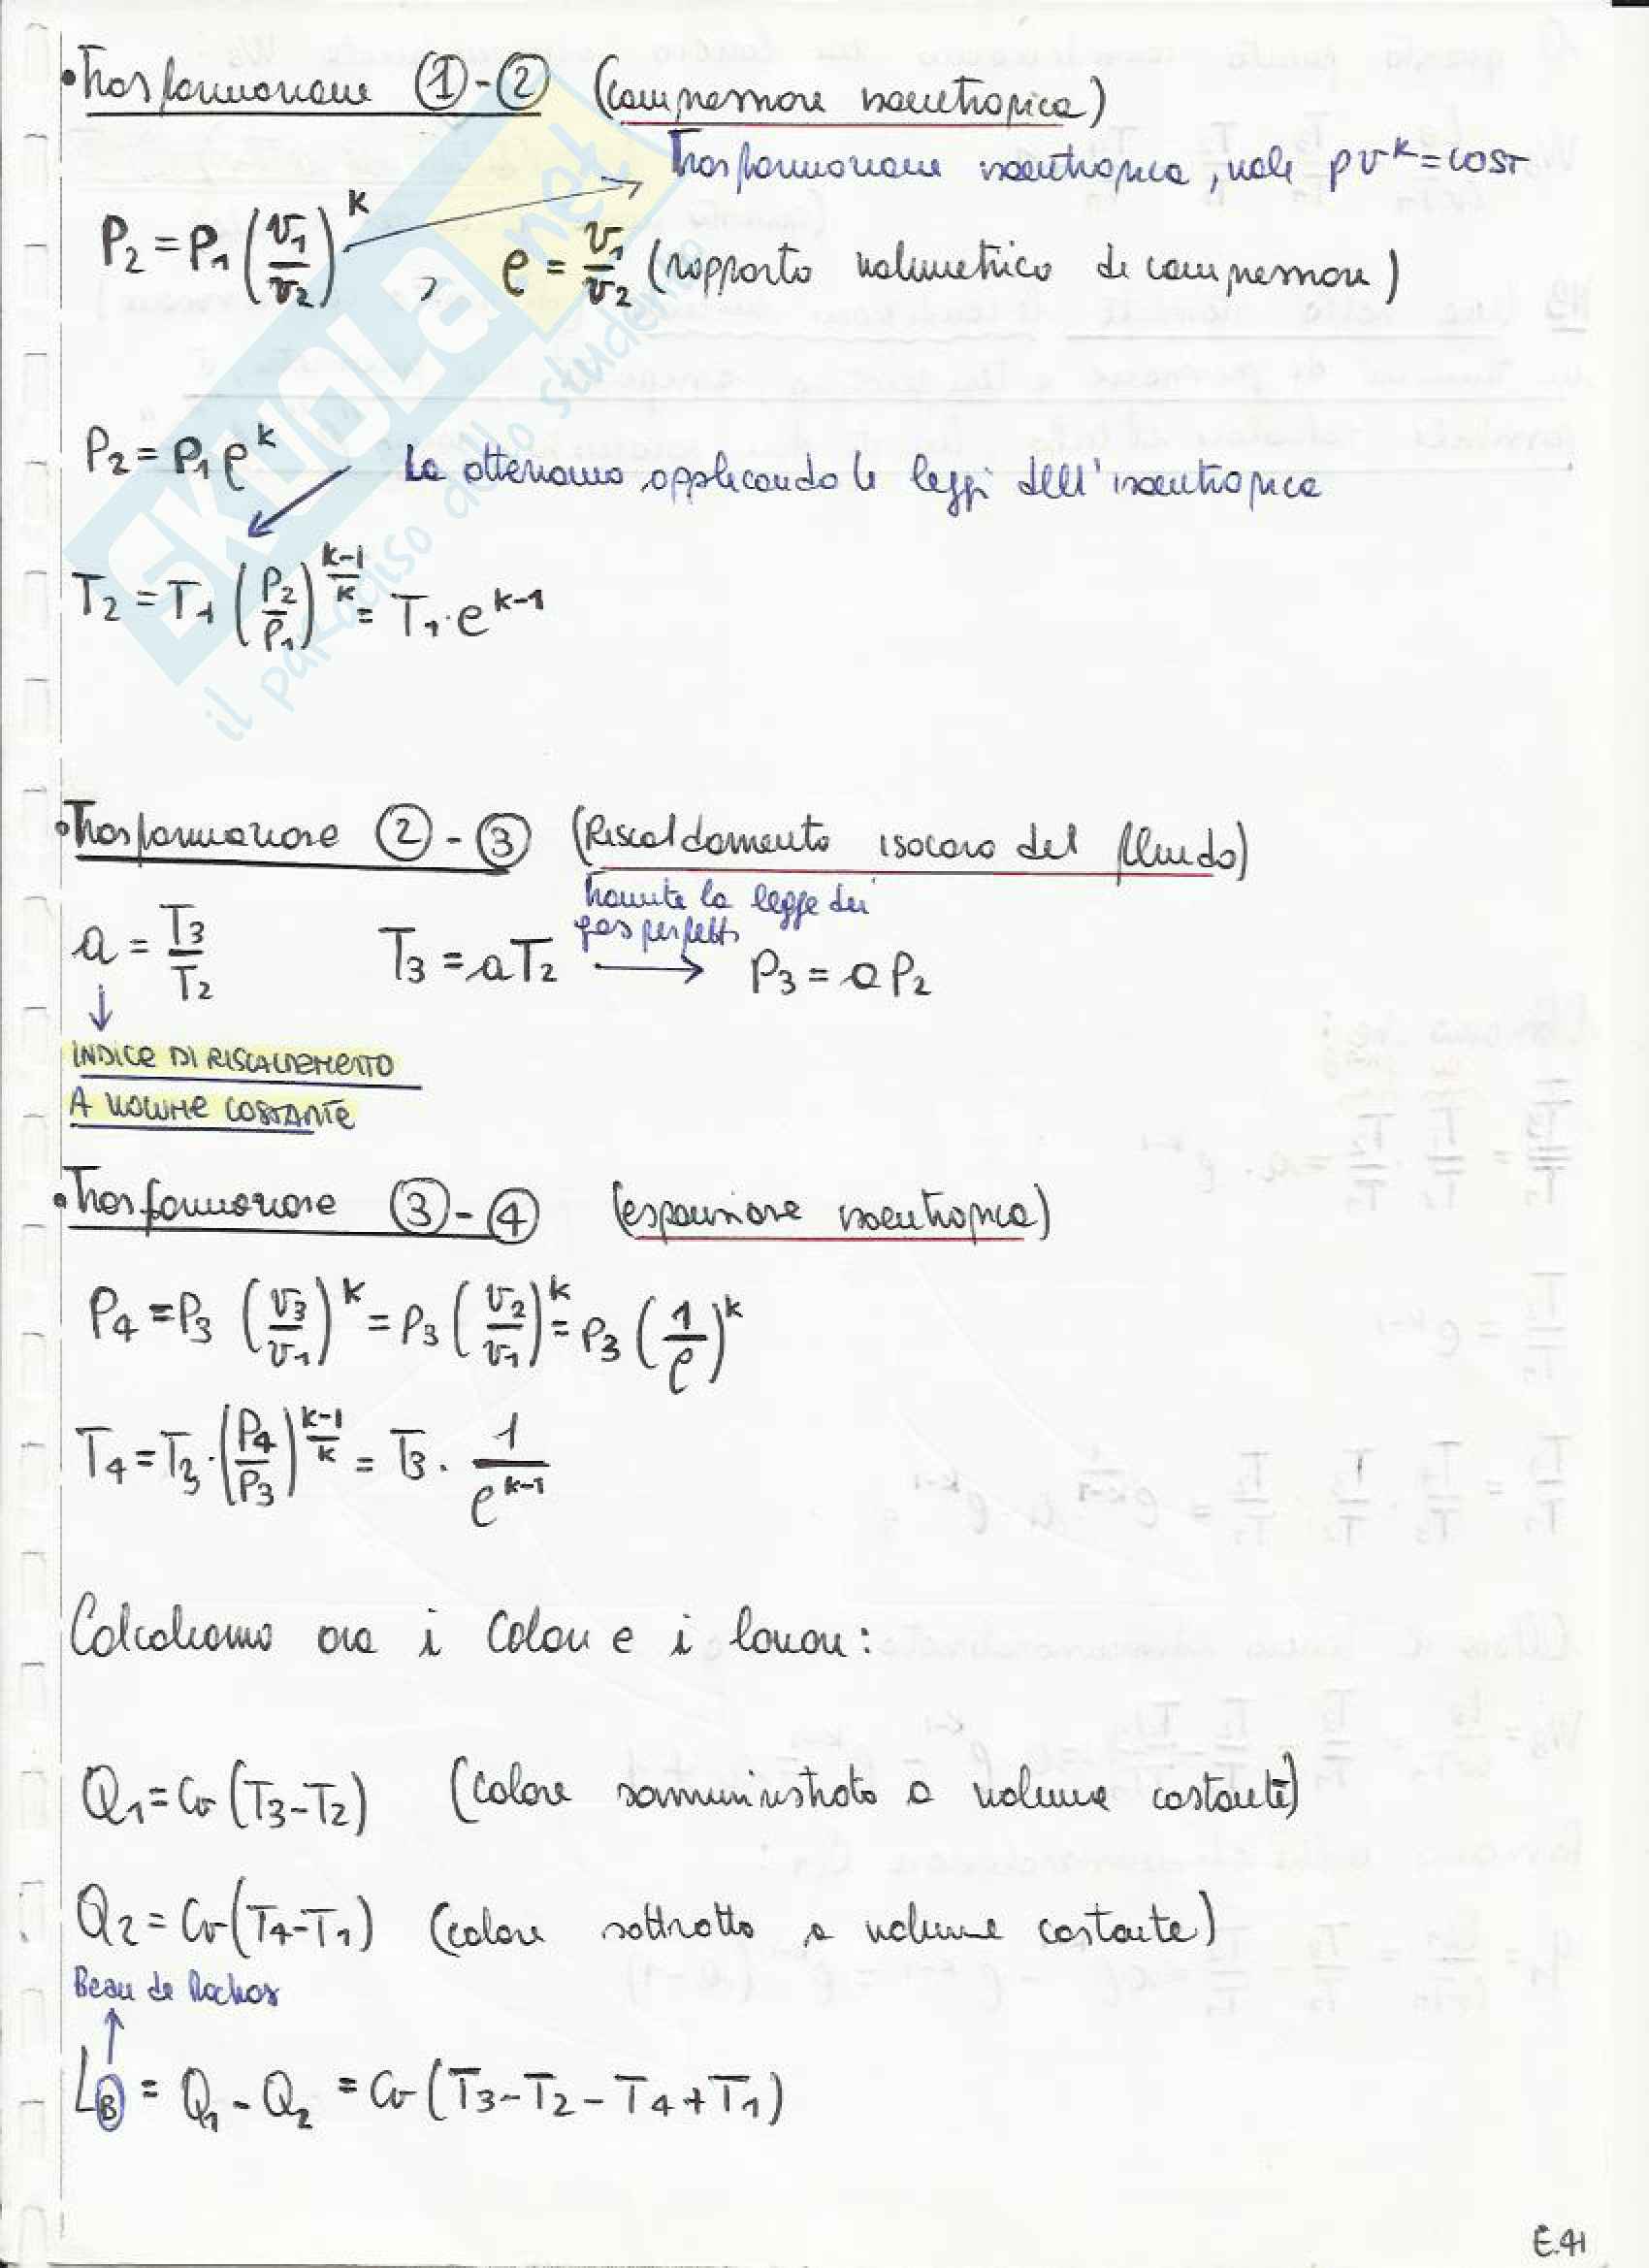 • Trasformazione ①-② (compressione isoentropica)
Trasformazione isoentropica, vale pv^k = cost
P2 = P1 (v1/v2)^k , ρ = v1/v2 (rapporto volumetrico di compressione)
P2 = P1 ρ^k
Le otteniamo applicando le leggi dell'isoentropica
T2 = T1 (P2/P1)^((k-1)/k) = T1 · ρ^(k-1)
• Trasformazione ②-③ (Riscaldamento isocoro del fluido)
tramite la legge dei
gas perfetti
a = T3/T2 T3 = aT2 → P3 = aP2
INDICE DI RISCALDAMENTO
A VOLUME COSTANTE
• Trasformazione ③-④ (espansione isoentropica)
P4 = P3 (v3/v1)^k = P3 (v2/v1)^k = P3 (1/ρ)^k
T4 = T3 · (P4/P3)^((k-1)/k) = T3 · 1/ρ^(k-1)
Calcoliamo ora i calori e i lavori:
Q1 = Cv (T3-T2) (calore somministrato a volume costante)
Q2 = Cv (T4-T1) (calore sottratto a volume costante)
Beau de Rochas
LB = Q1 - Q2 = Cv (T3-T2-T4+T1)
E.41
SKUOLA.net
il paradiso dello studente